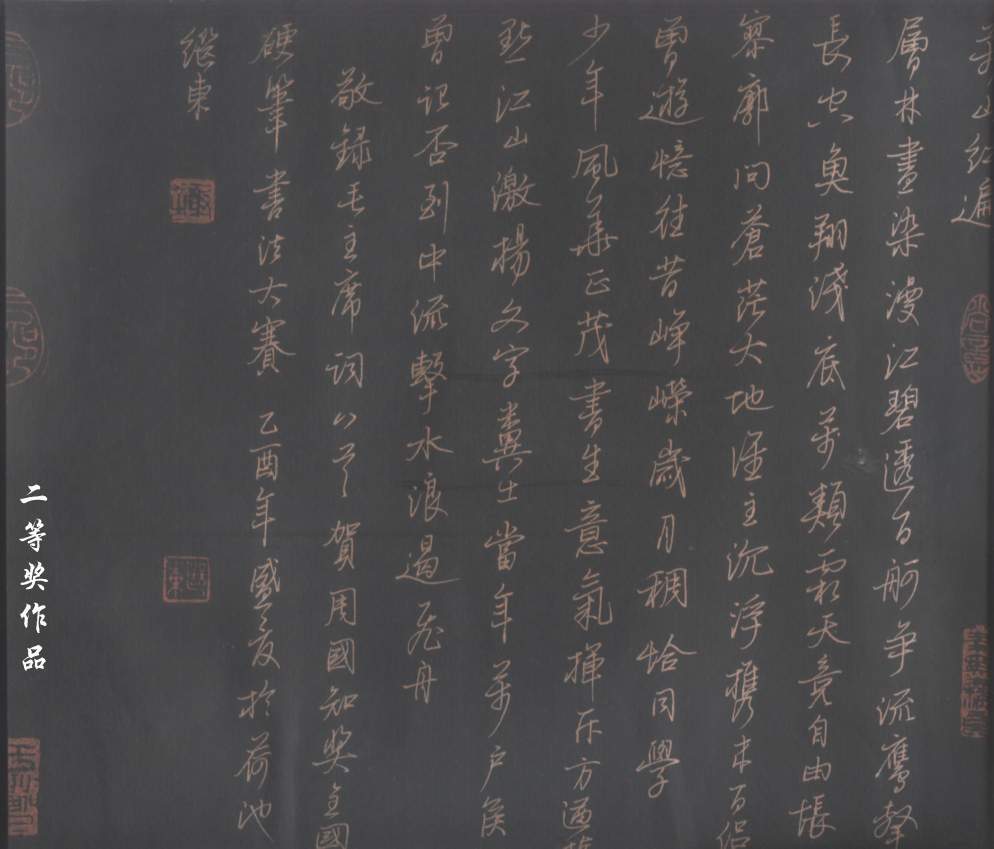 萬山紅遍
層林盡染漫江碧透百舸争流鷹擊
長空魚翔淺底萬類霜天競自由悵
寥廓問蒼茫大地誰主沉浮携來百侣
曽遊憶往昔崢嶸歲月稠恰同學
少年風華正茂書生意氣揮斥方遒指
點江山激揚文字糞土當年萬户侯
曽記否到中流擊水浪遏飛舟
敬録毛主席詞以賀周國知奖全國
硬筆書法大賽 乙酉年盛夏於荷池
繼東
二等奖作品